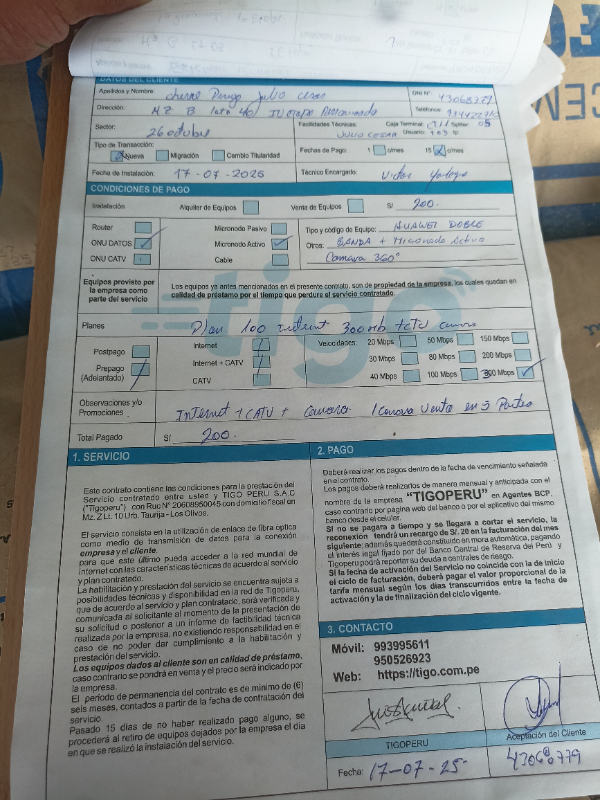 DATOS DEL CLIENTE
Apellidos y Nombre Julio Cesar DNI N°
Dirección: MZ B Lote 40 Teléfonos:
Sector: 26 octubre Facilidades Técnicas: Caja Terminal: Splitter: 05
JULIO CESAR Usuario:
Tipo de Transacción:
Nueva Migración Cambio Titularidad Fechas de Pago: 1 c/mes 15 c/mes
Fecha de Instalación: 17-07-2025 Técnico Encargado: Victor
CONDICIONES DE PAGO
Instalación Alquiler de Equipos Venta de Equipos S/ 200.
Router Micronodo Pasivo Tipo y código de Equipo: HUAWEI DOBLE
ONU DATOS Micronodo Activo Otros: BANDA + Micronodo Activo
ONU CATV Cable Camara 360°
Equipos provisto por la empresa como parte del servicio
Los equipos ya antes mencionados en el presente contrato, son de propiedad de la empresa, los cuales quedan en calidad de préstamo por el tiempo que perdure el servicio contratado.
tigo
Planes Plan 100 300mb
Postpago Internet Velocidades 20 Mbps 50 Mbps 150 Mbps
Prepago (Adelantado) Internet + CATV 30 Mbps 80 Mbps 200 Mbps
CATV 40 Mbps 100 Mbps 300 Mbps
Observaciones y/o Promociones Internet + CATV + Camara. 1 Camara Venta en 3 Partes
Total Pagado S/ 200.
1. SERVICIO
Este contrato contiene las condiciones para la prestación del
Servicio contratado entre usted y TIGO PERU S.A.C
("Tigoperu") con Ruc N° 20608950045 con domicilio fiscal en
Mz. Z Lt. 10 Urb. Taurija - Los Olivos.
El servicio consiste en la utilización de enlace de fibra optica
como medio de transmisión de datos para la conexión
empresa y el cliente.
para que este último pueda acceder a la red mundial de
internet con las características técnicas de acuerdo al servicio
y plan contratado.
La habilitación y prestación del servicio se encuentra sujeta a
posibilidades técnicas y disponibilidad en la red de Tigoperu,
que de acuerdo al servicio y plan contratado, será verificada y
comunicada al solicitante al momento de la presentación de
su solicitud o posterior a un informe de factibilidad técnica
realizada por la empresa, no existiendo responsabilidad en el
caso de no poder dar cumplimiento a la habilitación y
prestación del servicio.
Los equipos dados al cliente son en calidad de préstamo,
caso contrario se pondrá en venta y el precio será indicado por
la empresa.
El periodo de permanencia del contrato es de minimo de (6)
seis meses, contados a partir de la fecha de contratación del
servicio.
Pasado 15 días de no haber realizado pago alguno, se
procederá al retiro de equipos dejados por la empresa el día
en que se realizó la instalación del servicio.
2. PAGO
Deberá realizar los pagos dentro de la fecha de vencimiento señalada
en el contrato.
Los pagos deberá realizarlos de manera mensual y anticipada con el
nombre de la empresa "TIGOPERU" en Agentes BCP,
caso contrario por página web del banco o por el aplicativo del mismo
banco desde el celular.
Si no se paga a tiempo y se llegara a cortar el servicio, la
reconexión tendrá un recargo de S/. 20 en la facturación del mes
siguiente; además quedará constituido en mora automática, pagando
el interés legal fijado por del Banco Central de Reserva del Perú y
Tigoperu podrá reportar su deuda a centrales de riesgo.
Si la fecha de activación del Servicio no coincide con la de inicio
del ciclo de facturación, deberá pagar el valor proporcional de la
tarifa mensual según los días transcurridos entre la fecha de
activación y la de finalización del ciclo vigente.
3. CONTACTO
Móvil: 993995611
950526923
Web: https://tigo.com.pe
TIGOPERU Aceptación del Cliente
Fecha: 17-07-25-